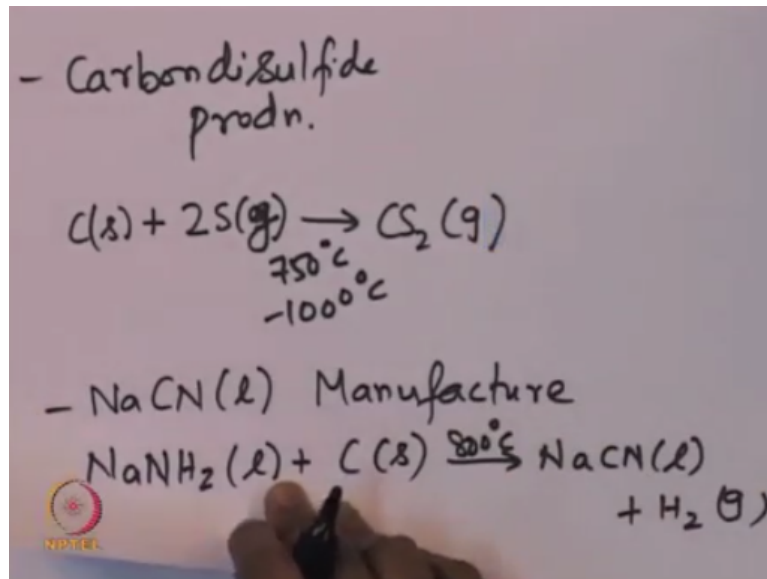 - Carbondisulfide
prodn.
C(s) + 2S(g) → CS₂ (g)
750°C
-1000°C
- NaCN(l) Manufacture
NaNH₂(l) + C(s) 800°C → NaCN(l)
+ H₂ (g)
NPTEL